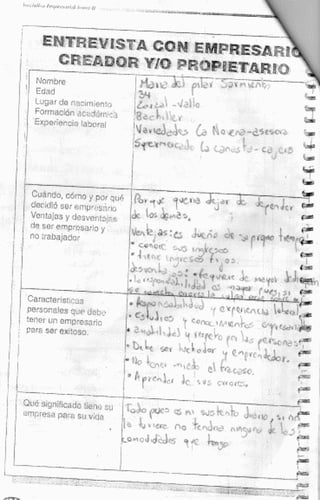 Iniciativa Empresarial
ENTREVISTA CON EMPRESARIO
CREADOR Y/O PROPIETARIO
Nombre
Edad
Lugar de nacimiento
Formación académica
Experiencia laboral
Maria del pilar Sarmiento
34
Zarzal - Valle
Bachiller
Variedades la Novena - asesora
Supermercado la canasta - cajera
Cuándo, cómo y por qué
decidió ser empresario
Ventajas y desventajas
de ser empresario y
no trabajador
Porque queria dejar de depender
de los demas,
Ventajas: es dueño de su propio tiempo
• conoce sus ingresos
• tiene ingresos fijos.
desventajas: • Requiere de mayor
• la responsabilidad es mayor pues, si
Características
personales que debe
tener un empresario
para ser exitoso.
• Responsabilidad y experiencia laboral
• Estudios y conocimientos
• amabilidad y respeto por las personas
• Debe ser luchador y emprendedor.
• No tener miedo al fracaso.
• Aprender de sus errores.
Qué significado tiene su
empresa para su vida
Todo pues es mi sustento diario, si no
lo tuviera no tendria ninguna de las
comodidades que tengo